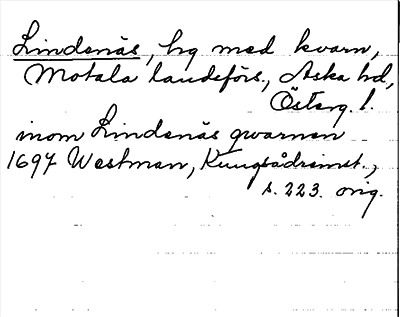 Lindenäs, hg med kvarn,
Motala landsförs., Aska hd,
Österg. l.
inom Lindenäs qwarnen
1697 Westman, Kungsådreinst.,
s. 223. orig.